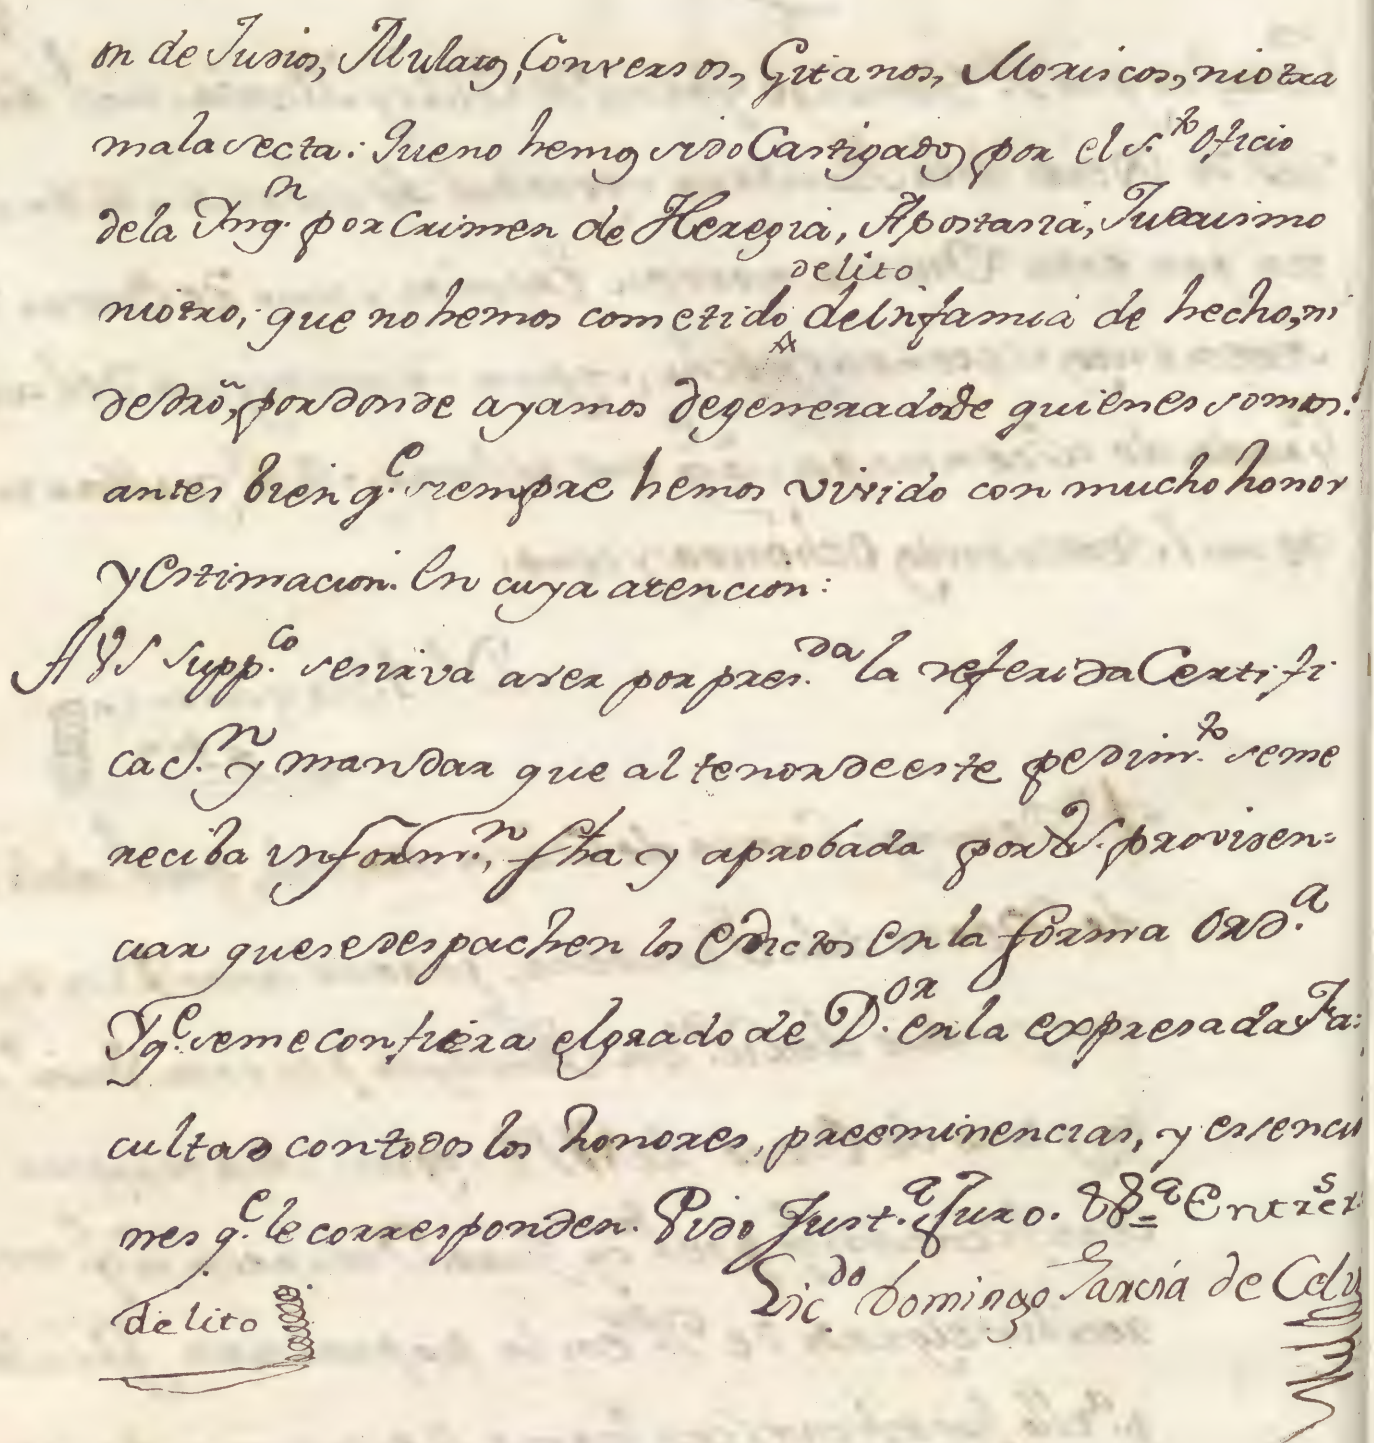 on de Judios, Mulatos, Conversos, Gitanos, Moriscos, ni otra
mala secta: Que no hemos sido Castigados por el S.to Oficio
de la Inq.n por Crimen de Heregia, Apostasia, Judaismo
ni otro, que no hemos cometido delito de Infamia de hecho, ni
de dro, por donde ayamos degenerado de quienes somos:
antes bien q.e siempre hemos vivido con mucho honor
y estimacion. En cuya atencion:
A VS supp.co se sirva aver por pres.da la referida Certifi
cac.n y mandar que al tenor de este pedim.to se me
reciba inform.n, fha y aprobada por VS. providen=
ciar que se despachen los Edictos en la forma Ord.a
Y q.e se me confiera el grado de D.or en la expresada Fa=
cultad con todos los honores, preeminencias, y essencio
nes q.e le corresponden. Pido Just.a Juro. V.a Entrer.s
Lic.do Domingo Garcia de Celis
delito